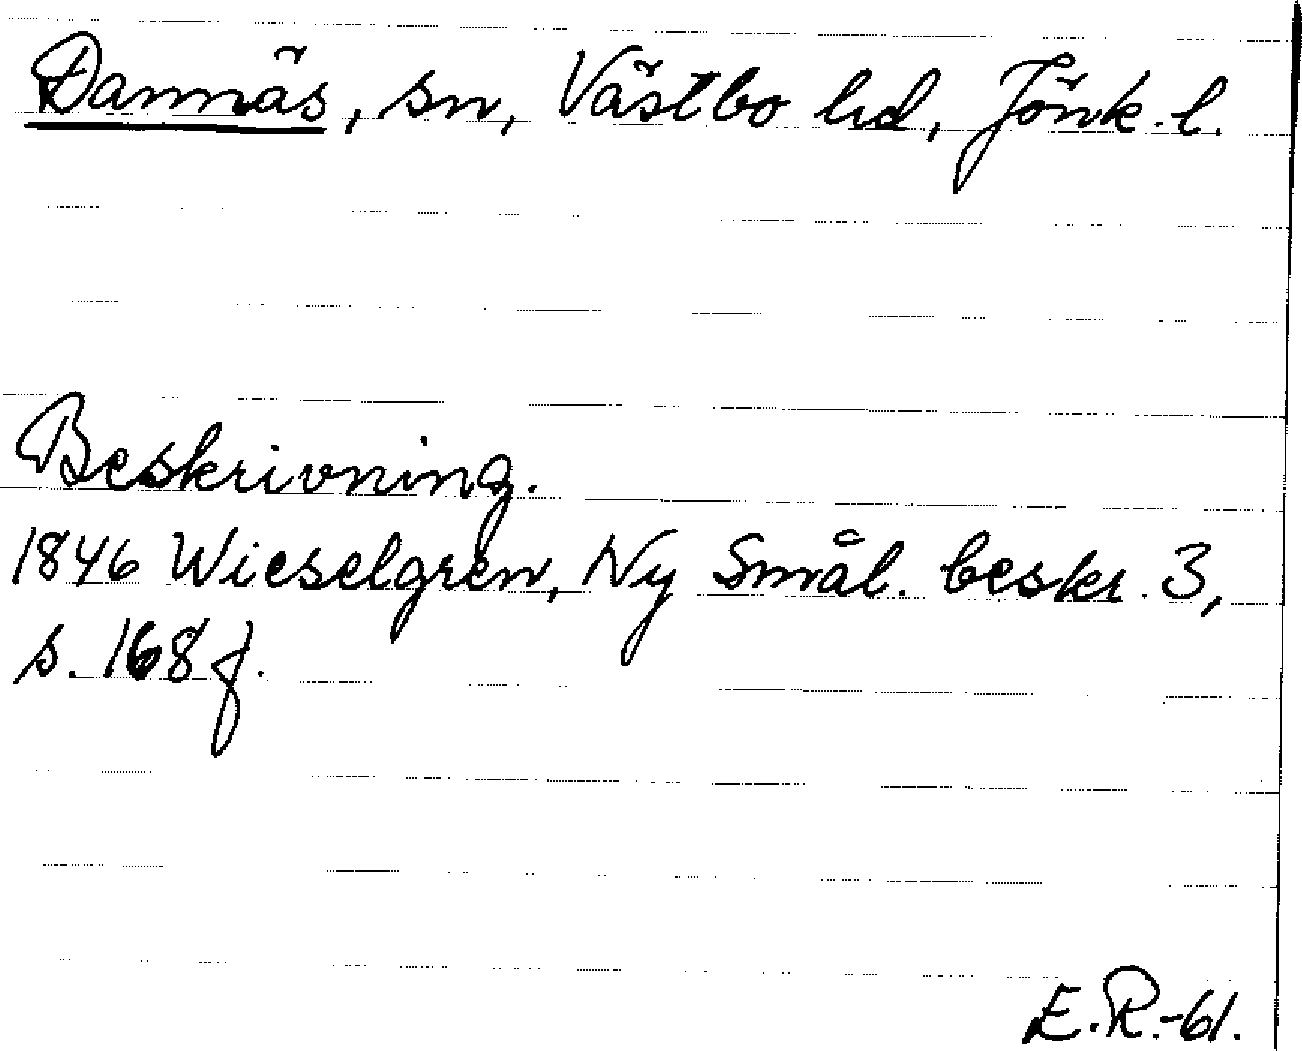 Dannäs, sn, Västbo hd, Jönk. l.
Beskrivning.
1846 Wieselgren, Ny Smål. beskr. 3,
s. 168 f.
E.R.-61.